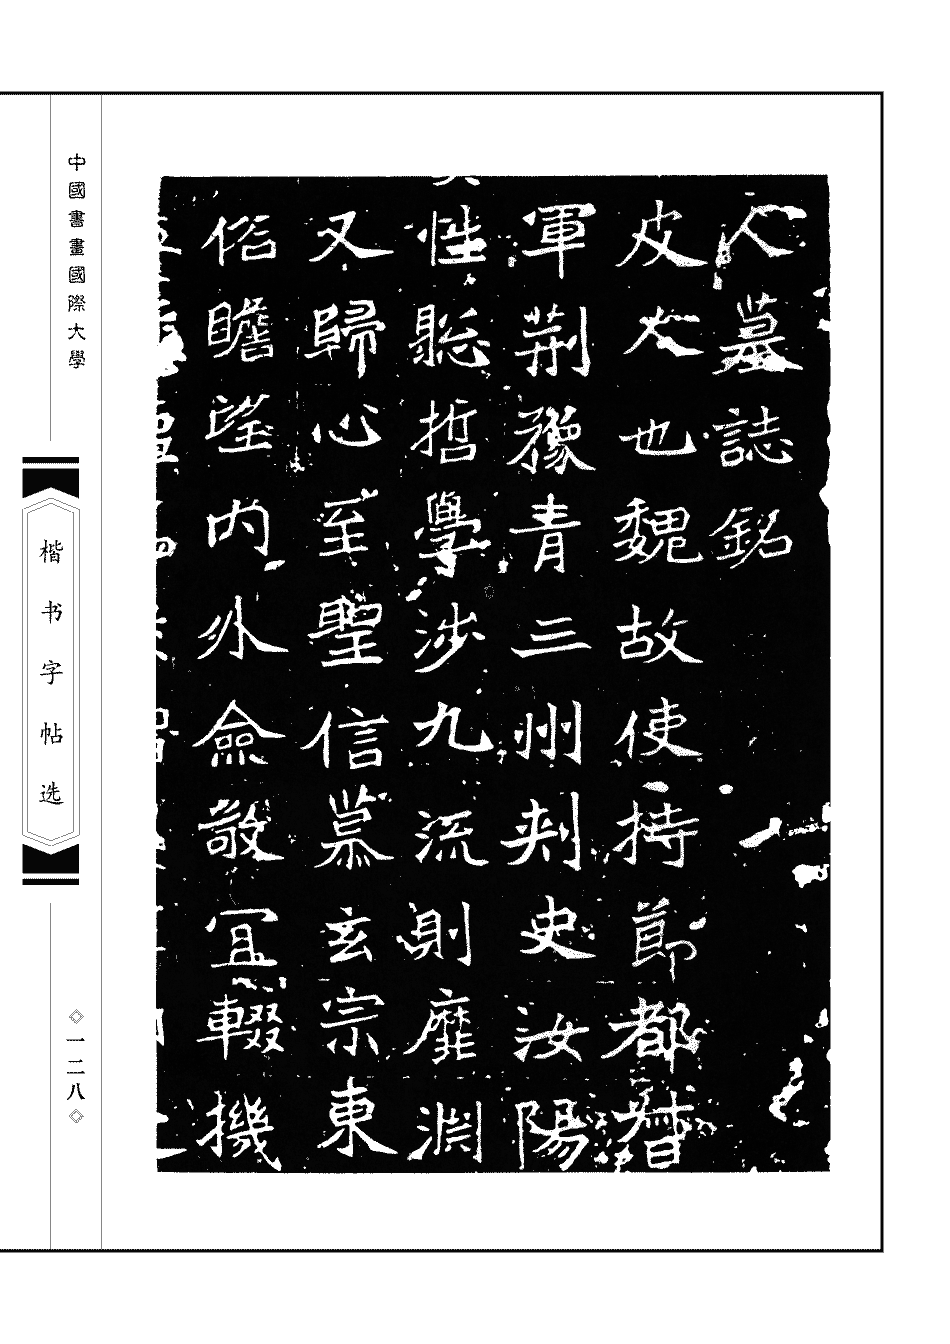 人墓誌銘
皮大也魏故使持節都督
軍荊豫青三州刺史汝陽
性聡哲學涉九流則靡淵
又歸心至聖信慕玄宗東
俗瞻望內外僉敬冝輟機
中國書畫國際大學
楷书字帖选
一二八